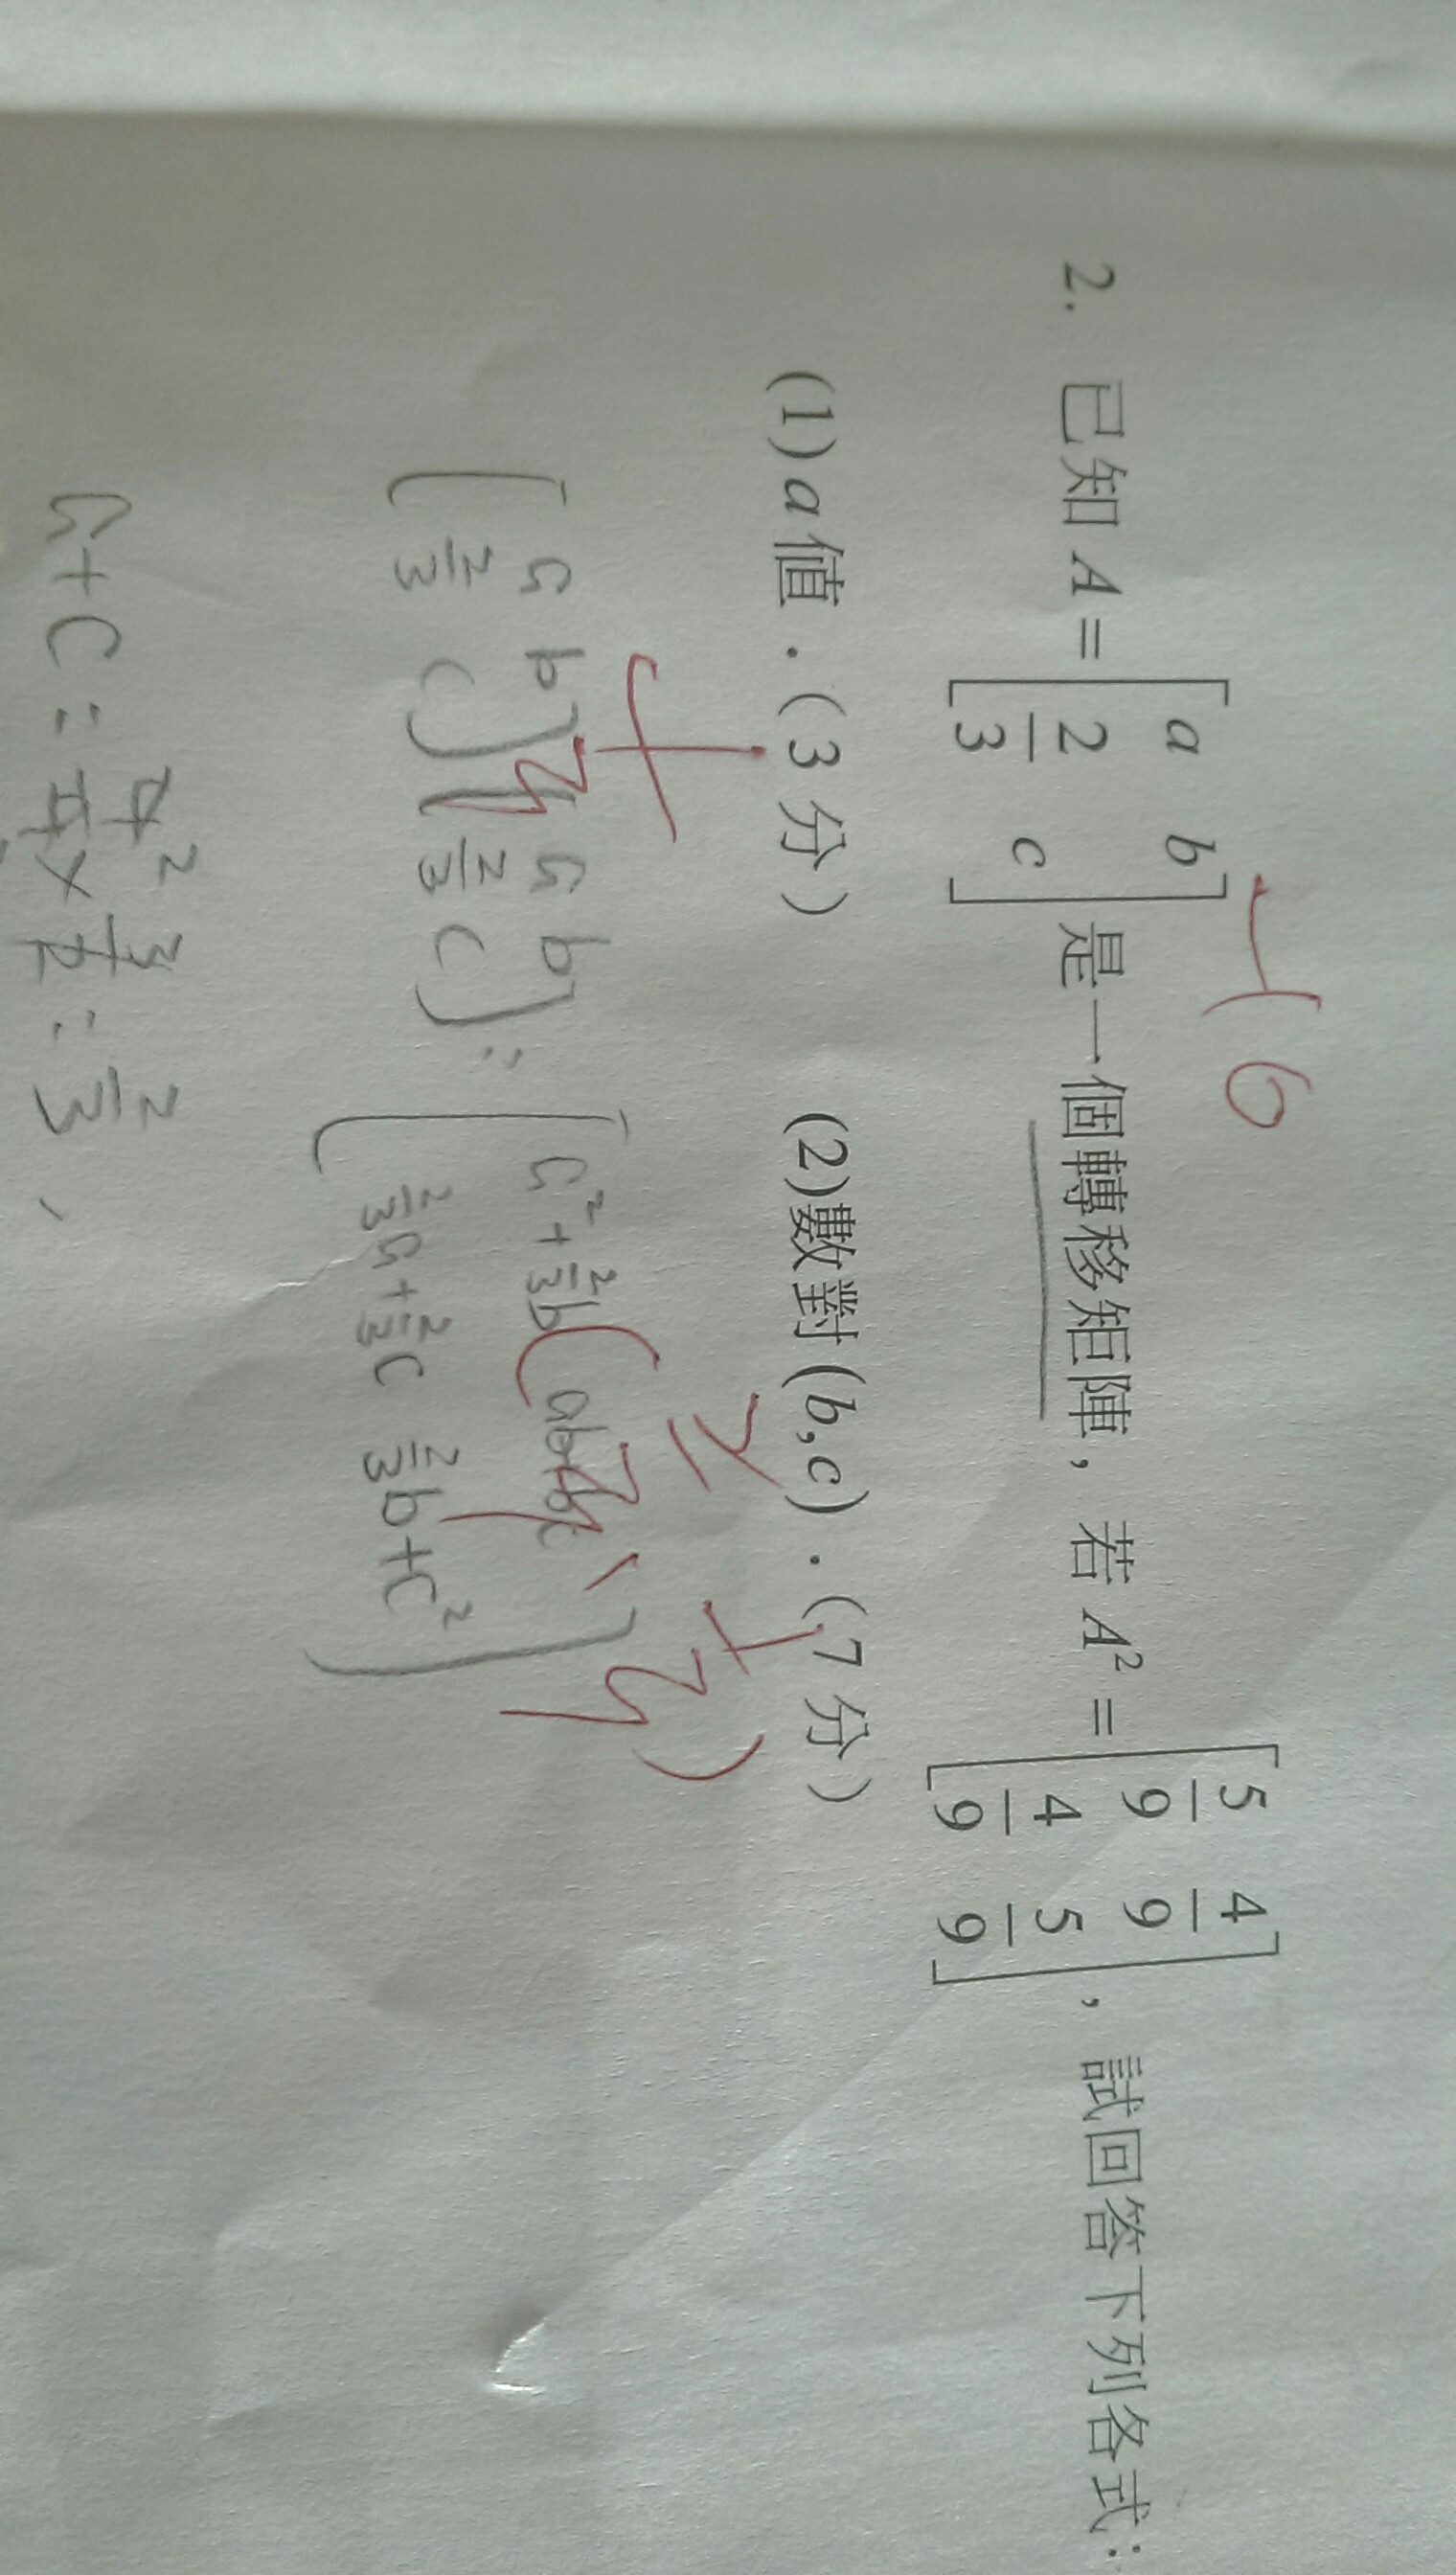 -6
2. 已知 A = [ a b ; 2/3 c ] 是一個轉移矩陣，若 A² = [ 5/9 4/9 ; 4/9 5/9 ]，試回答下列各式：
(1) a 值．(3 分) (2)數對 (b,c)．(7 分)
[ a b ; 2/3 c ] [ a b ; 2/3 c ] = [ a²+2/3b ab+bc ; 2/3a+2/3c 2/3b+c² ]
a+c = 4/9 × 3/2 = 2/3,